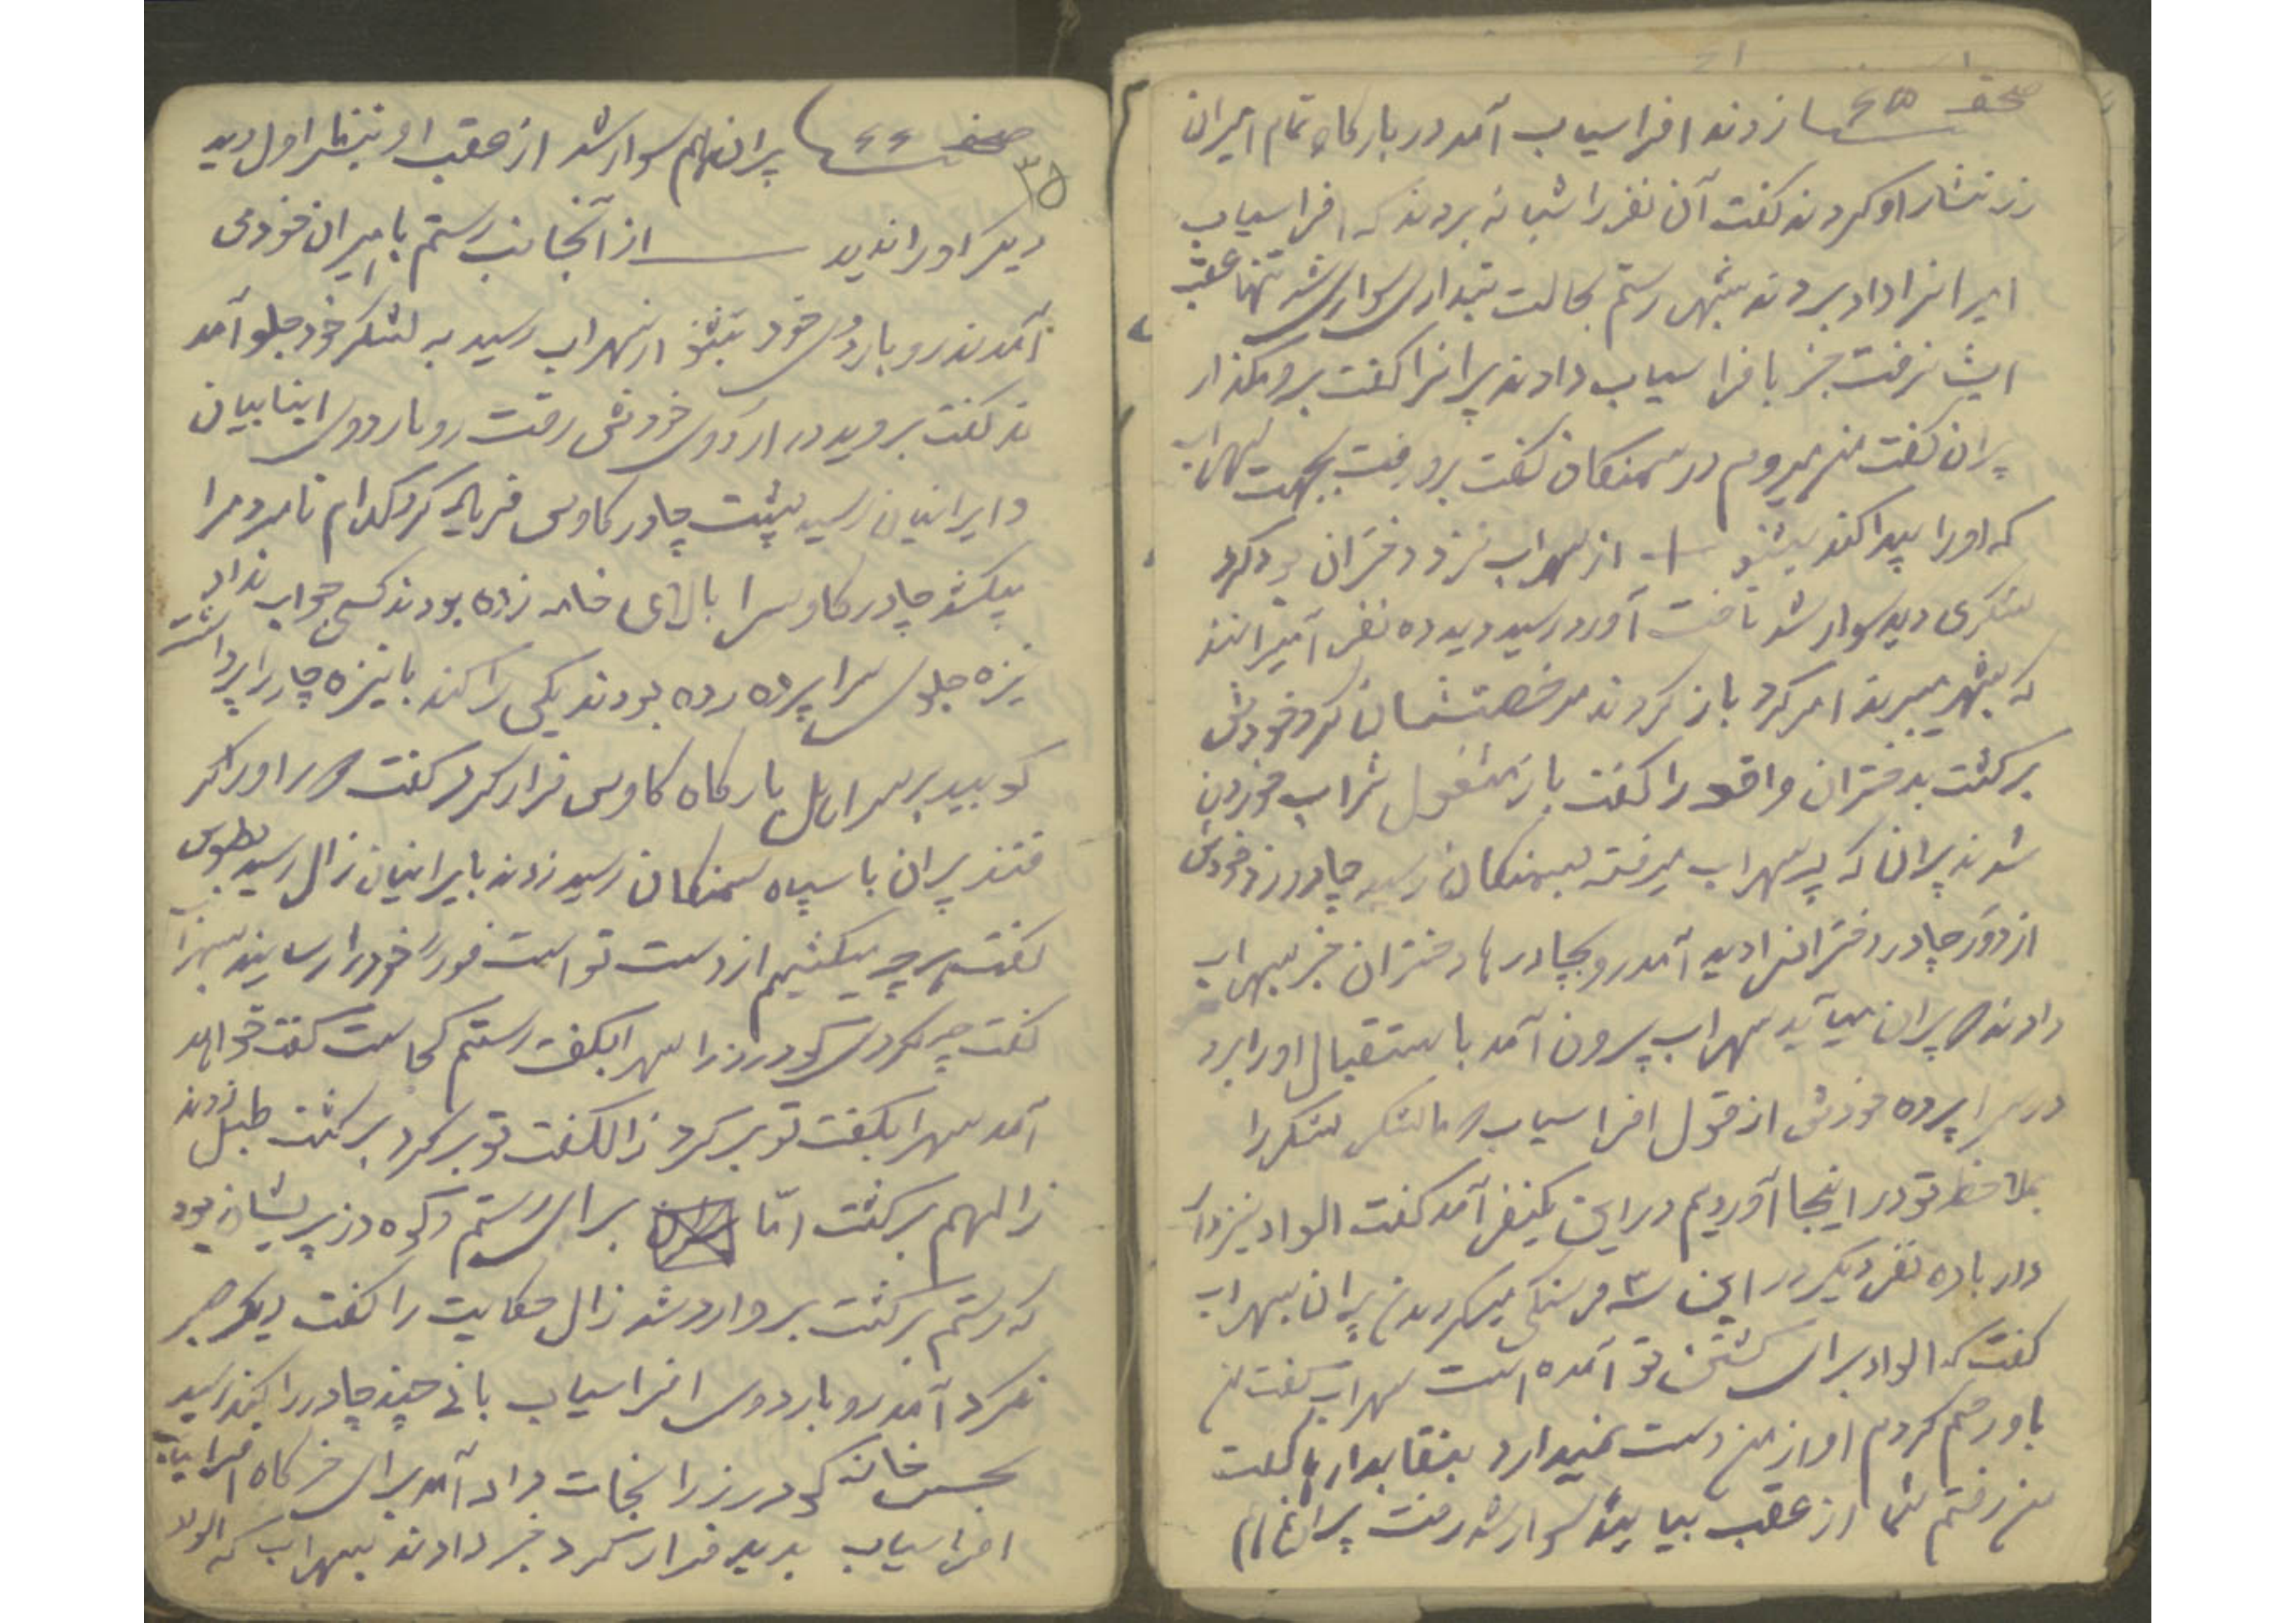 صفحه ۶۵ زدند افراسیاب آمد در بارگاه تمام امیران
زر نثار او کردند گفت آن نفر را شبانه بردند که افراسیاب
ایرانرا داد بردند بشهر رستم بحالت تبداری سوار شد تنها عقب
ایشان رفت خبر بافراسیاب دادند پیرانرا گفت برو مگذار
پیران گفت من میروم در سمنگان گفت برو رفت بجهت سهراب
که او را پیدا کند بشنو از سهراب نزد دختران بود گرد
لشکری دید سوار شد تاخت آورد رسید دید ده نفر امیرانند
که بشهر میبرند امر کرد باز کردند مرخصشان کرد خودش
برگشت بدختران واقعه را گفت باز مشغول شراب خوردن
شدند پیران که پی سهراب میرفت بسمنگان رسید چادر زد خودش
از دور چادر دخترانرا دید آمد رو بچادرها دختران خبر بسهراب
دادند که پیران میآید سهراب بیرون آمد باستقبال او را برد
در سراپرده خودش از قول افراسیاب که ما لشکر را
بملاحظه تو در اینجا آوردیم در این یکنفر آمد گفت الواد
دارد با ده نفر دیگر در این ۳ فرسنگی میگردند پیران بسهراب
گفت که الواد برای کشتن تو آمده است سهراب گفت من
باور هم کردم او از من دست نمیدارد بنقابدارها گفت
من رفتم شما از عقب بیایید سوار شد رفت پیران
صفحه ۶۶ پیران هم سوار شد از عقب او بتنها اول دید
۳۵
دیگر او را ندید از آنجانب رستم با امیران خودی
آمدند رو باردوی خود بشنو از سهراب رسید به لشکر خود جلو آمد
ند گفت بروید در اردوی خودش رفت رو باردوی
ایرانیان رسید پشت چادر کاوس فریاد کرد کدام نامرد مرا
میکشد چادر کاوسرا بالای خانه زده بودند کسی جواب نداد
نیزه جلوی سراپرده زده بودند یکی را کند با نیزه چادر را برداشت
کوبید بر سر اهل بارگاه کاوس فرار کرد گفت
فتند پیران با سپاه سمنگان رسید زدند بایرانیان زال رسید بطوس
گفت هر چه میکشیم از دست تو است فوراً خود را رسانید
گفت چه کردی گودرز را سهراب گفت رستم کجاست گفت خواهد
آمد سهراب گفت تو برگرد زال گفت تو برگرد برگشت طبل زدند
زال هم برگشت امّا برای رستم و گودرز پریشان بود
که رستم برگشت وارد شد زال حکایت را گفت دیگر صبر
نکرد آمد رو باردوی افراسیاب چند چادر را کند رسید
بحبس خانه گودرز را نجات داد آمد برای خرگاه افراسیاب
افراسیاب بدید فرار کرد خبر دادند بسهراب که الواد